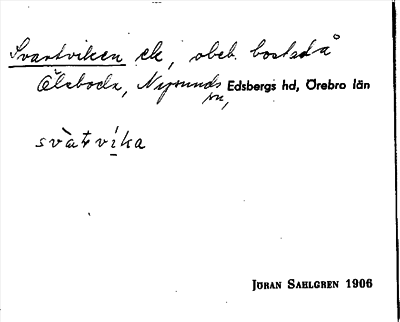 Svartviken ek, obeb. bostad å
Ölsboda, Nysunds Edsbergs hd, Örebro län
sn,
svàtvíka
JÖRAN SAHLGREN 1906